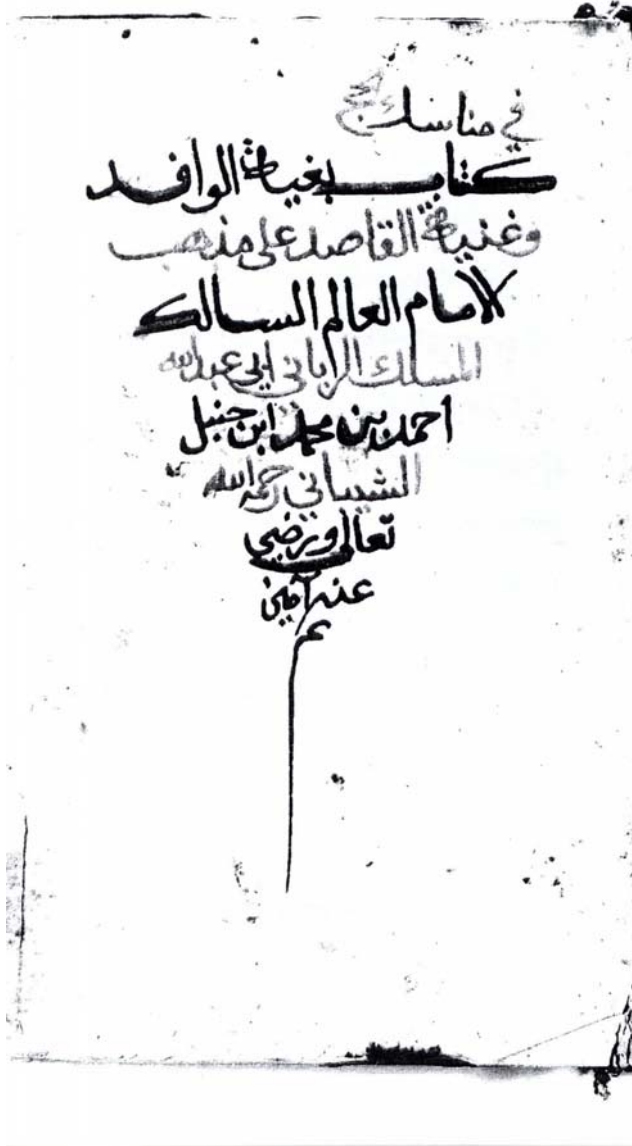 في مناسك الحج
كتاب بغية الوافد
وغنية القاصد على مذهب
الامام العالم السالك
المسلك الرباني ابي عبد الله
احمد بن محمد ابن حنبل
الشيباني رحمه الله
تعالى ورضي
عنه آمين